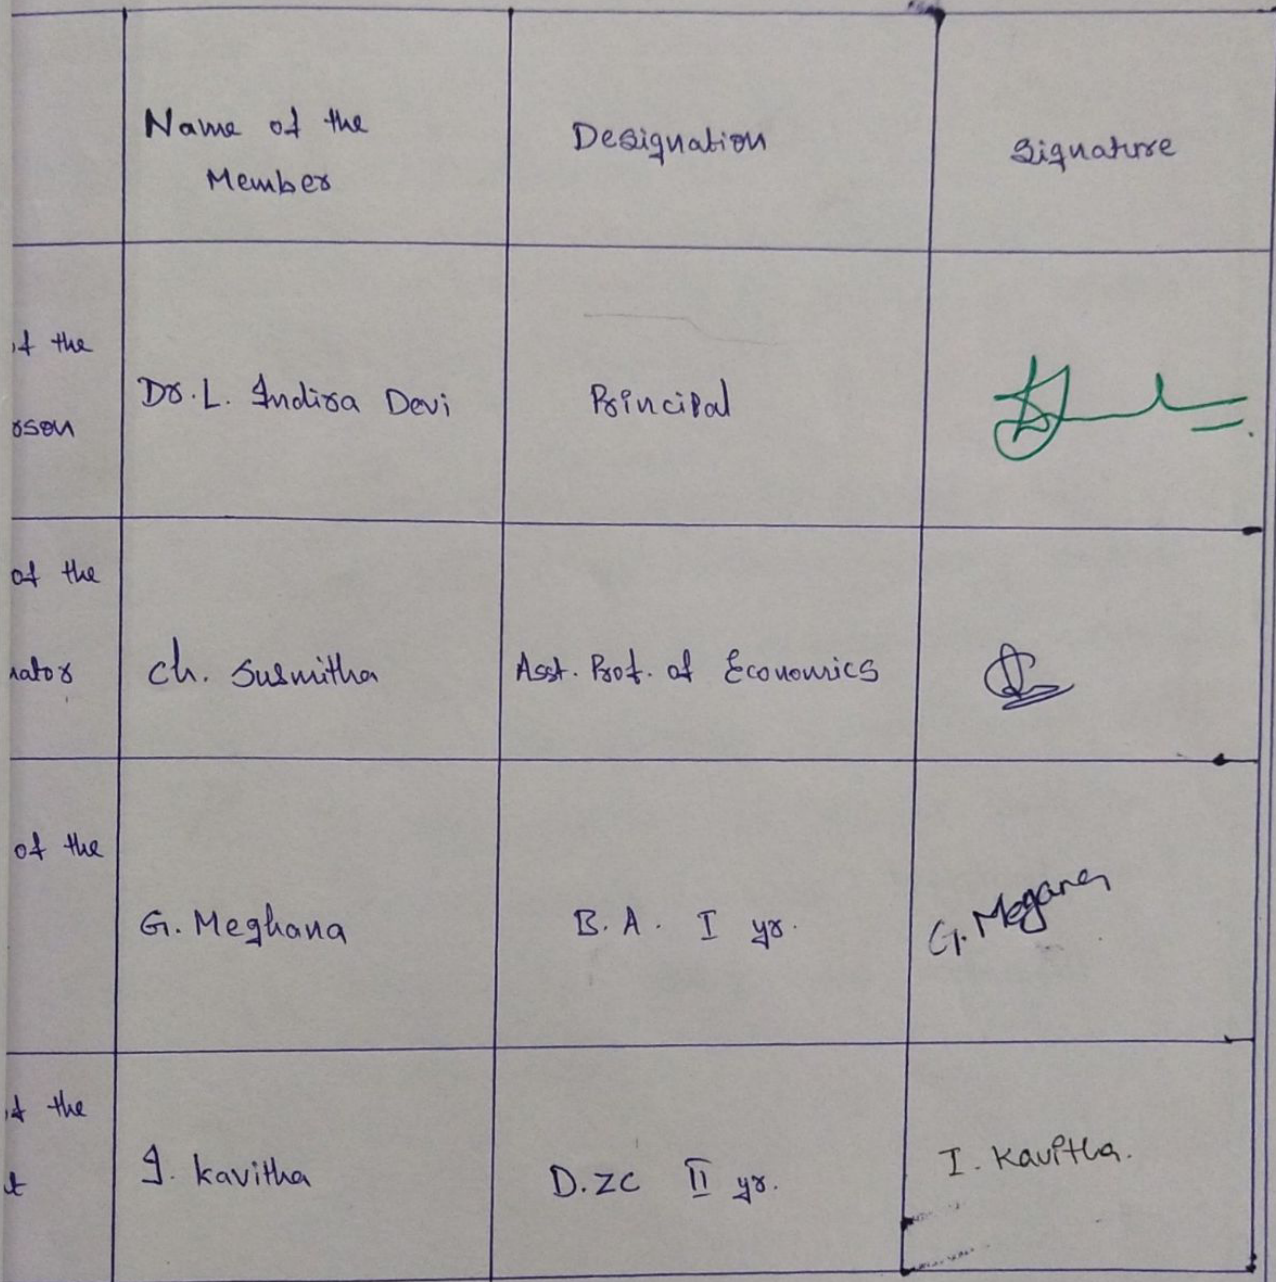 Name of the
Member
Designation
Signature
of the
Dr. L. Indira Devi
Principal
of the
Ch. Susmitha
Asst. Prof. of Economics
of the
G. Meghana
B. A. I yr.
G. Megana
the
I. Kavitha
D.ZC II yr.
I. Kavitha.